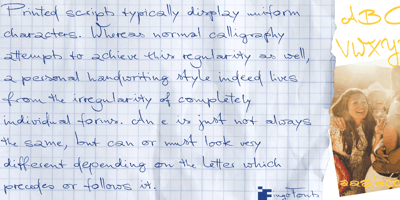 Printed scripts typically display uniform
characters. Whereas normal calligraphy
attempts to achieve this regularity as well,
a personal handwriting style indeed lives
from the irregularity of completely
individual forms. An e is just not always
the same, but can or must look very
different depending on the letter which
precedes or follows it.
FingoFonts
ABC
VWXYZ